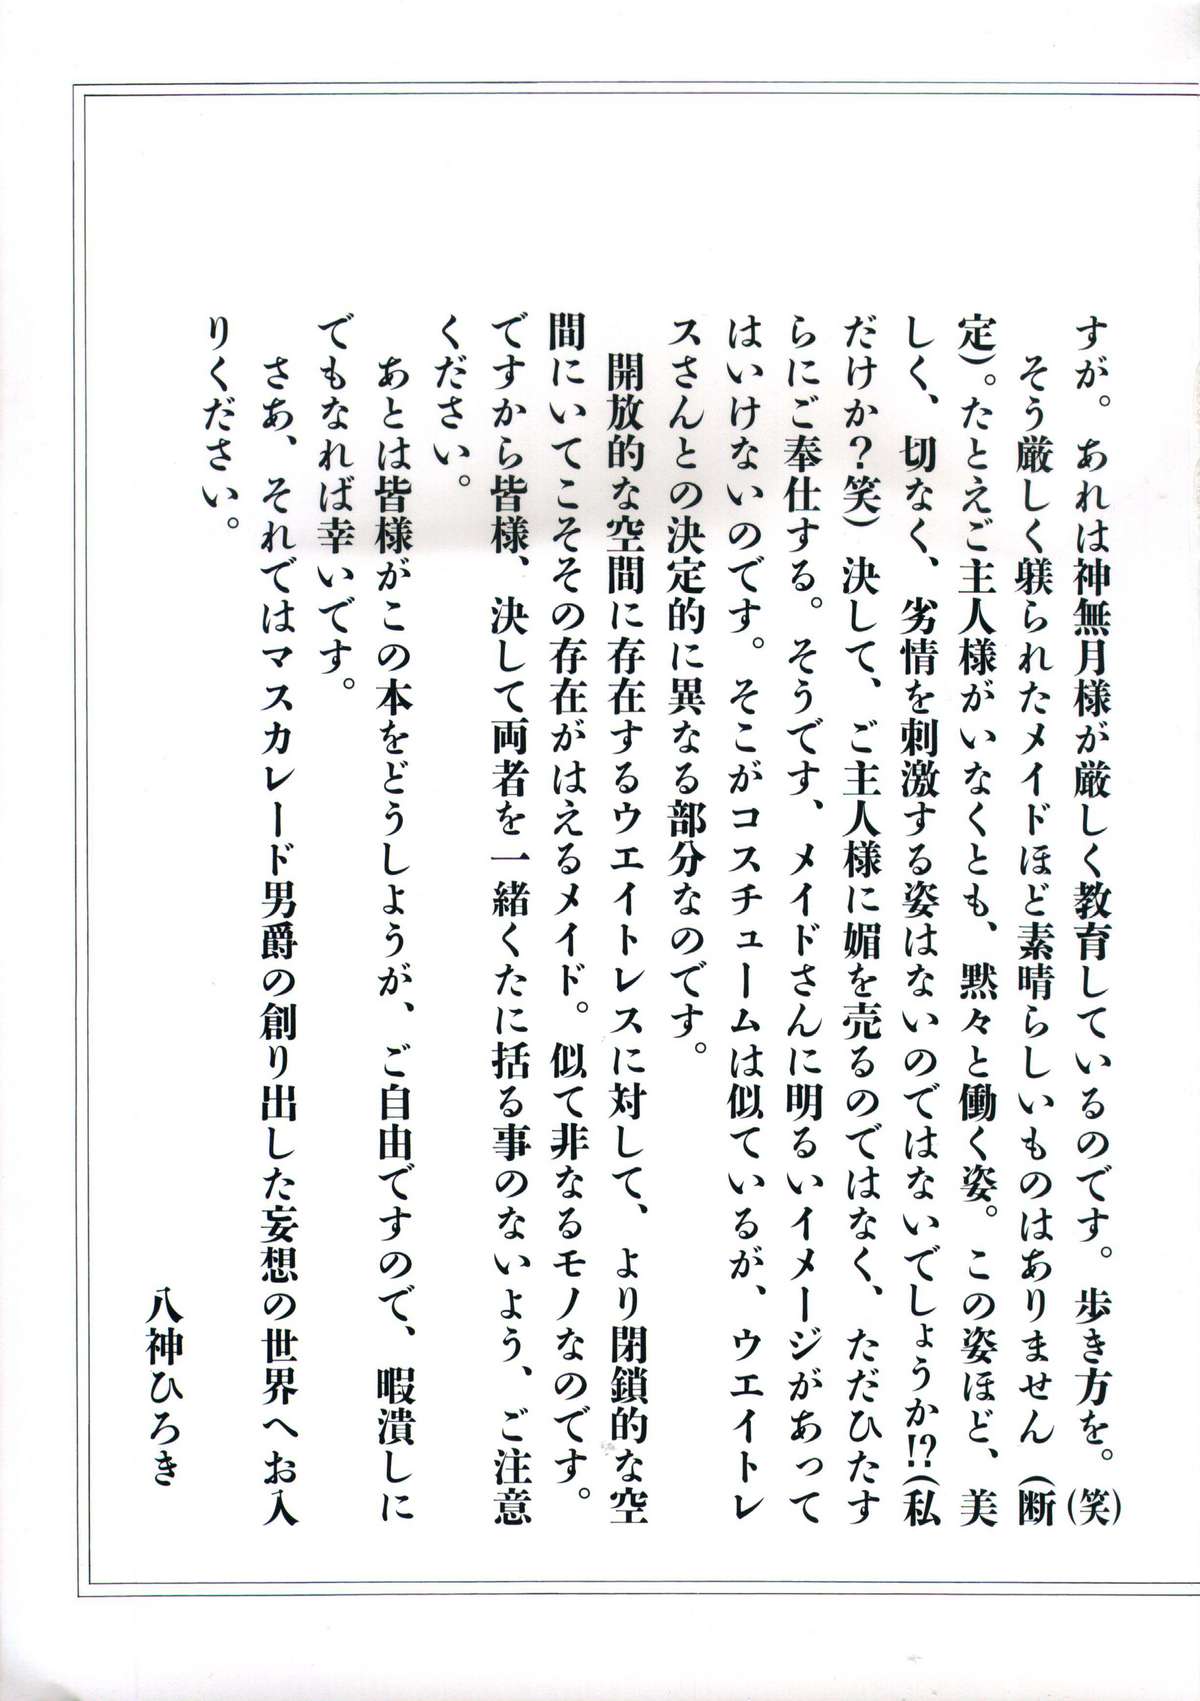 すが。あれは神無月様が厳しく教育しているのです。歩き方を。(笑)
そう厳しく躾られたメイドほど素晴らしいものはありません(断
定)。たとえご主人様がいなくとも、黙々と働く姿。この姿ほど、美
しく、切なく、劣情を刺激する姿はないのではないでしょうか!?(私
だけか?笑)決して、ご主人様に媚を売るのではなく、ただひたす
らにご奉仕する。そうです、メイドさんに明るいイメージがあって
はいけないのです。そこがコスチュームは似ているが、ウエイトレ
スさんとの決定的に異なる部分なのです。
開放的な空間に存在するウエイトレスに対して、より閉鎖的な空
間にいてこそその存在がはえるメイド。似て非なるモノなのです。
ですから皆様、決して両者を一緒くたに括る事のないよう、ご注意
ください。
あとは皆様がこの本をどうしようが、ご自由ですので、暇潰しに
でもなれば幸いです。
さあ、それではマスカレード男爵の創り出した妄想の世界へお入
りください。
八神ひろき